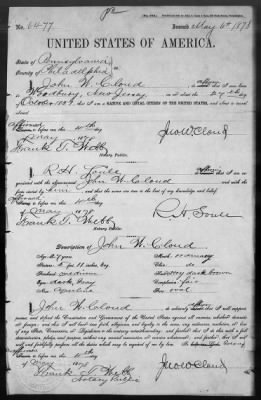 No. 6477 Issued May 6th 1878
UNITED STATES OF AMERICA.
State of Pennsylvania
County of Philadelphia
I, John W. Cloud do
that I was born
Woodbury, New Jersey on the
October 18 NATIVE AND LOYAL CITIZEN OF THE UNITED STATES, and about
to travel abroad
Affirmed before me this 4th
day of May 1878 Jno W Cloud
Frank T. Webb
Notary Public.
I, R. H. Soule do that I am
acquainted with the above-named John W Cloud and
with him to the best of my knowledge and belief.
before me this 4th
day of May 1878
Frank T. Webb R. H. Soule
Notary Public.
Description of John W. Cloud
Age: years Mouth: ordinary
Stature: 5 feet inches, Eng. Chin: do
Forehead: medium Hair: dark brown
Eyes: Complexion: fair
Nose: Face: oval
I, John W. Cloud do solemnly that I will support,
protect and defend the Constitution and Government of the United States against all enemies, whether domestic
or foreign; and that I will bear true faith, allegiance and loyalty to the same, any ordinance, resolution or law
of any State, Convention or Legislature to the contrary notwithstanding; and further, that I do this with a full
determination, pledge and purpose, without any mental reservation or evasion whatsoever; and further, that I will
well and faithfully perform all the duties which may be required of me by law:
before me this 4th
day of May 1878
Frank T. Webb Jno W Cloud
Notary Public